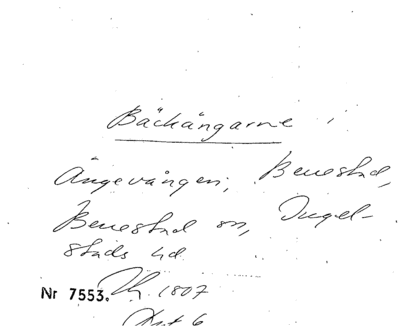 Bäckängarne i
Ängevången, Benestad,
Benestad sn, Ingel-
stads hd
Nr 7553. 1807